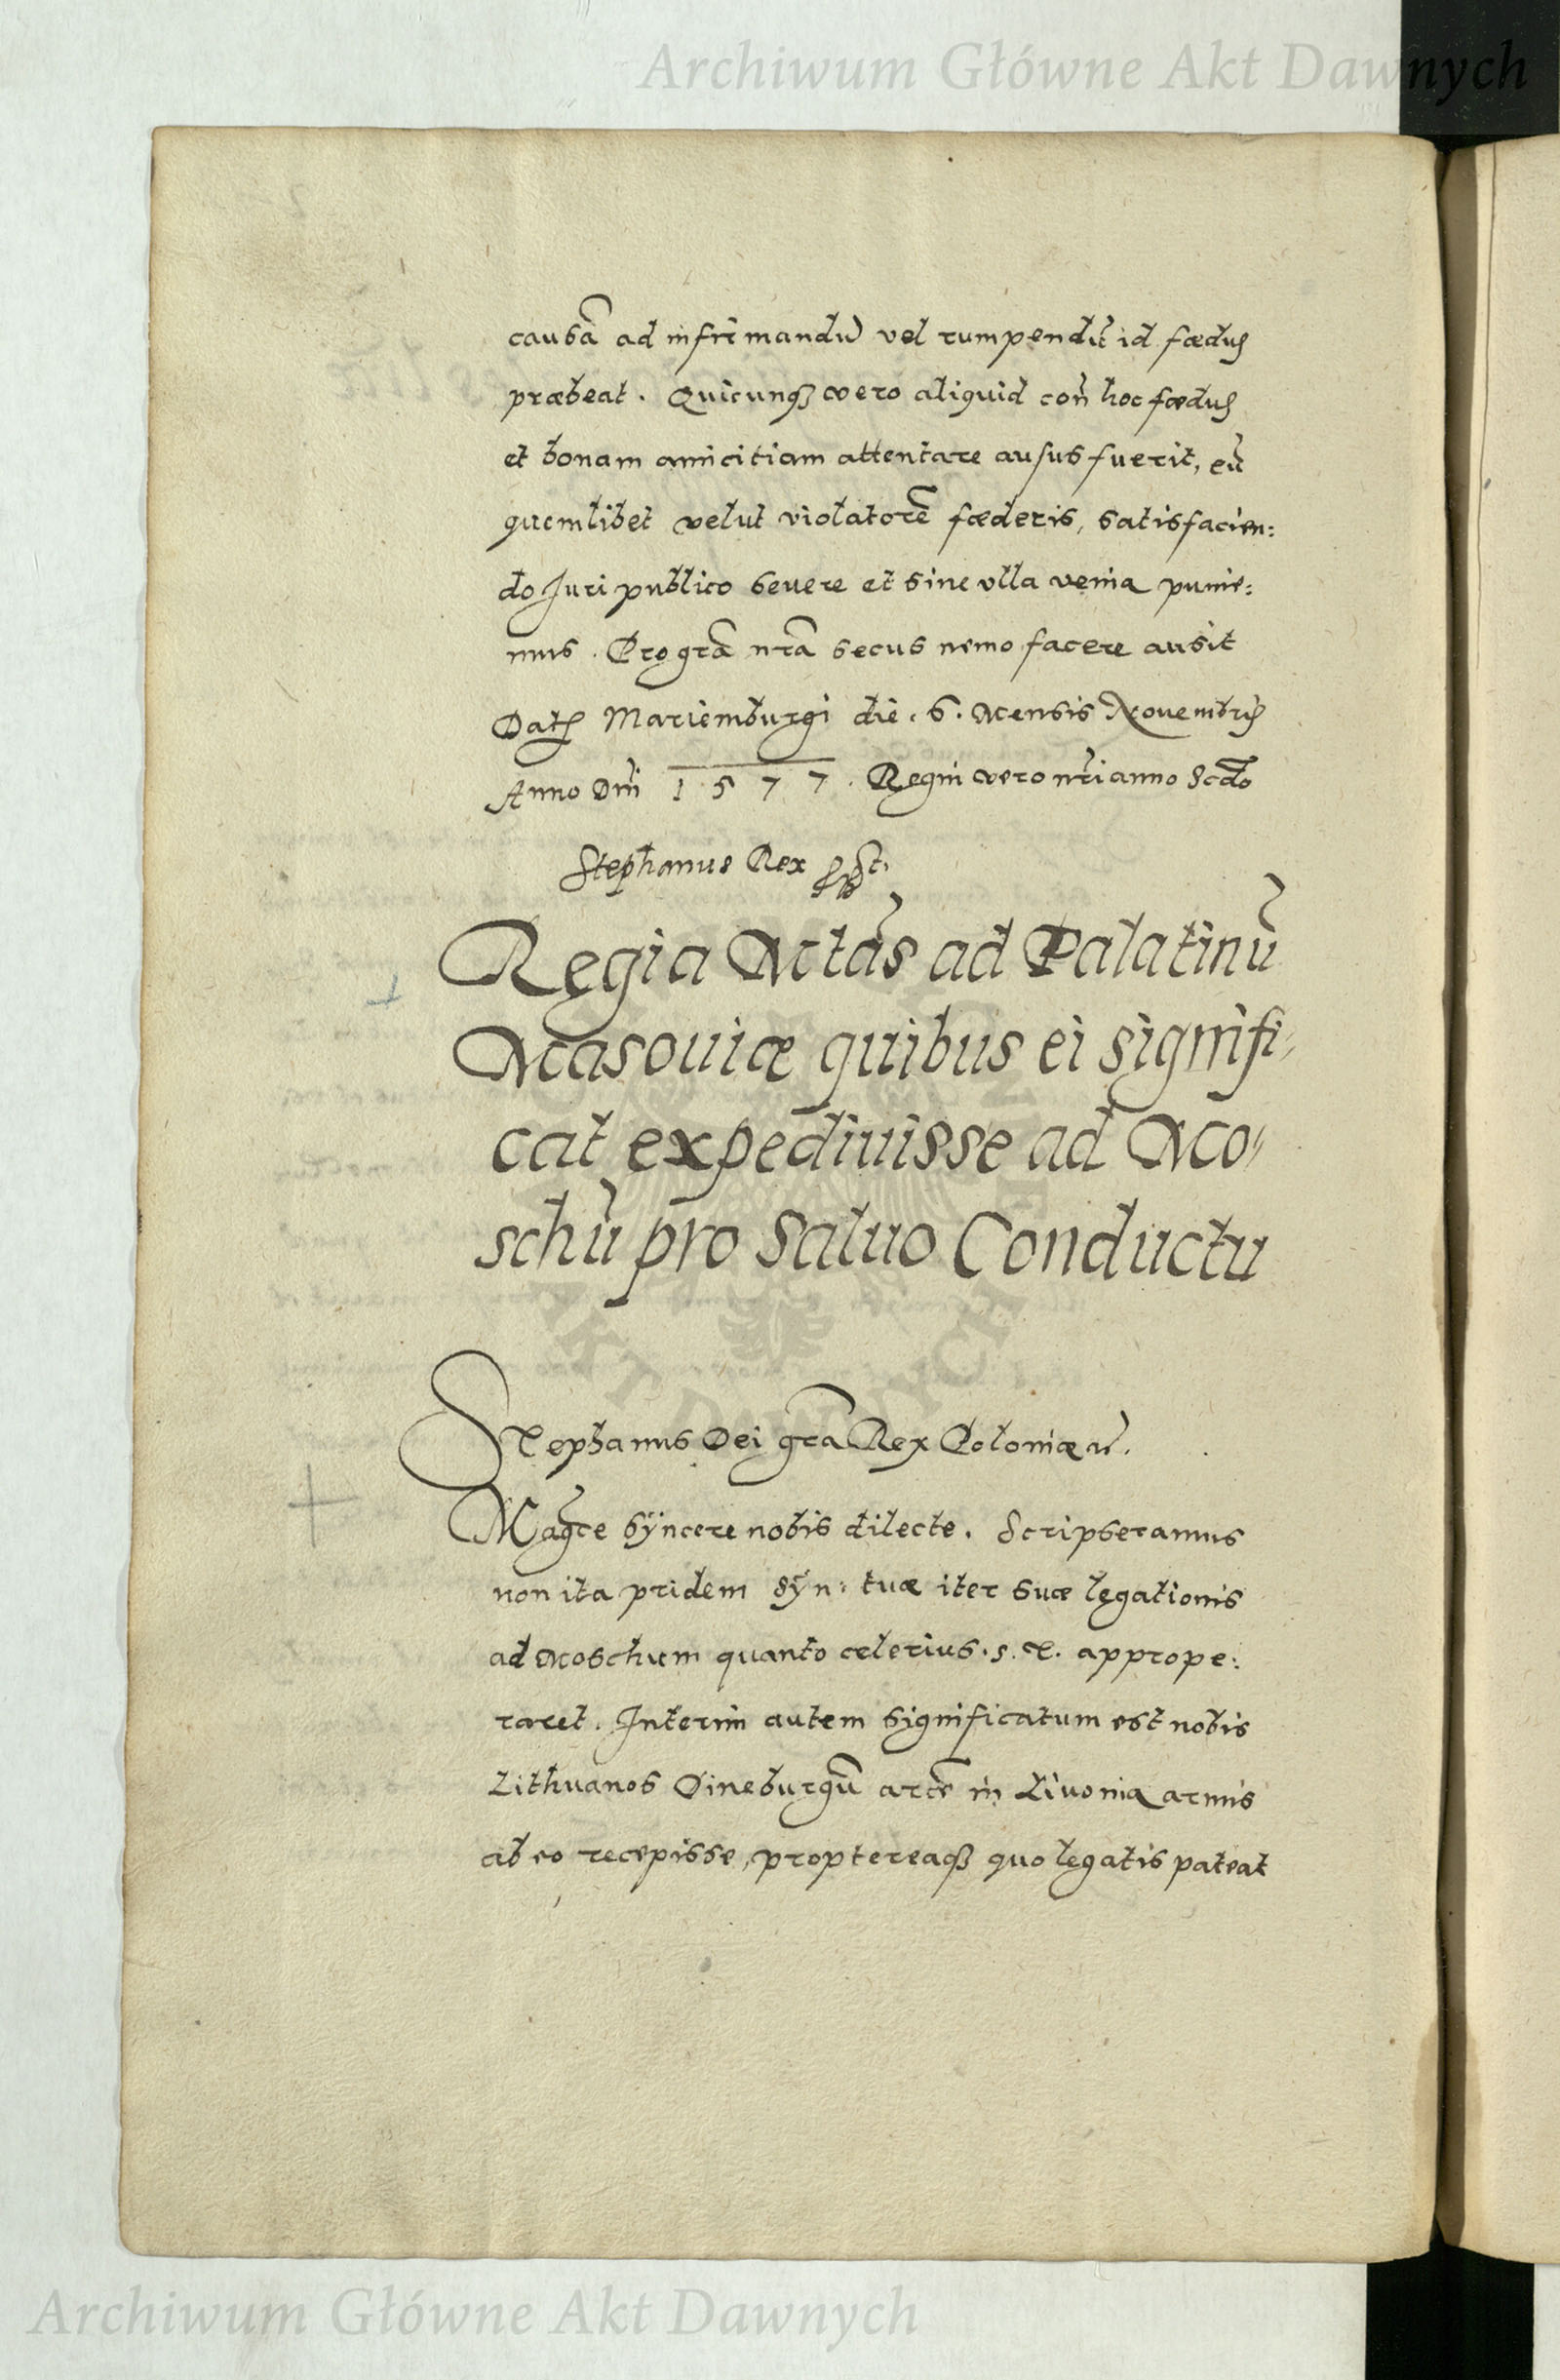 Archiwum Główne Akt Dawnych
causã ad infirmandũ vel rumpendũ id fœdus
præbeat. Quicunq3 vero aliquid coñ hoc fœdus
et bonam amicitiam attentare ausus fuerit, eũ
quemlibet velut violatorẽ fœderis, satisfacien:
do Juri publico seuere et sine vlla venia punie:
mus. Pro grã nrã secus nemo facere ausit
Dat Mariemburgi die. 6. Mensis Nouembris
Anno Dni 1577. Regni vero nri anno Scdo
Stephanus Rex sst.
Regia Mtas ad Palatinũ
Masouiæ quibus ei signifi-
cat expediuisse ad Mo-
schũ pro Saluo Conductu
Stephanus Dei grã Rex Poloniæ
Magce syncere nobis dilecte. Scripseramus
non ita pridem Syn: tuæ iter suæ legationis
ad Moschum quanto celerius. s. t. apprope:
raret. Interim autem significatum est nobis
Lithuanos Dineburgũ arcẽ in Liuonia armis
ab eo recepisse, proptereaq3 quo legatis pateat
Archiwum Główne Akt Dawnych